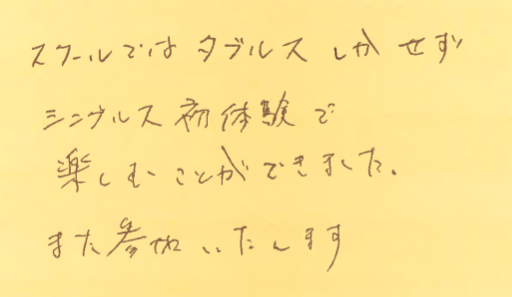 スクールではダブルスしかせず
シングルス初体験で
楽しむことができました。
また参加いたします